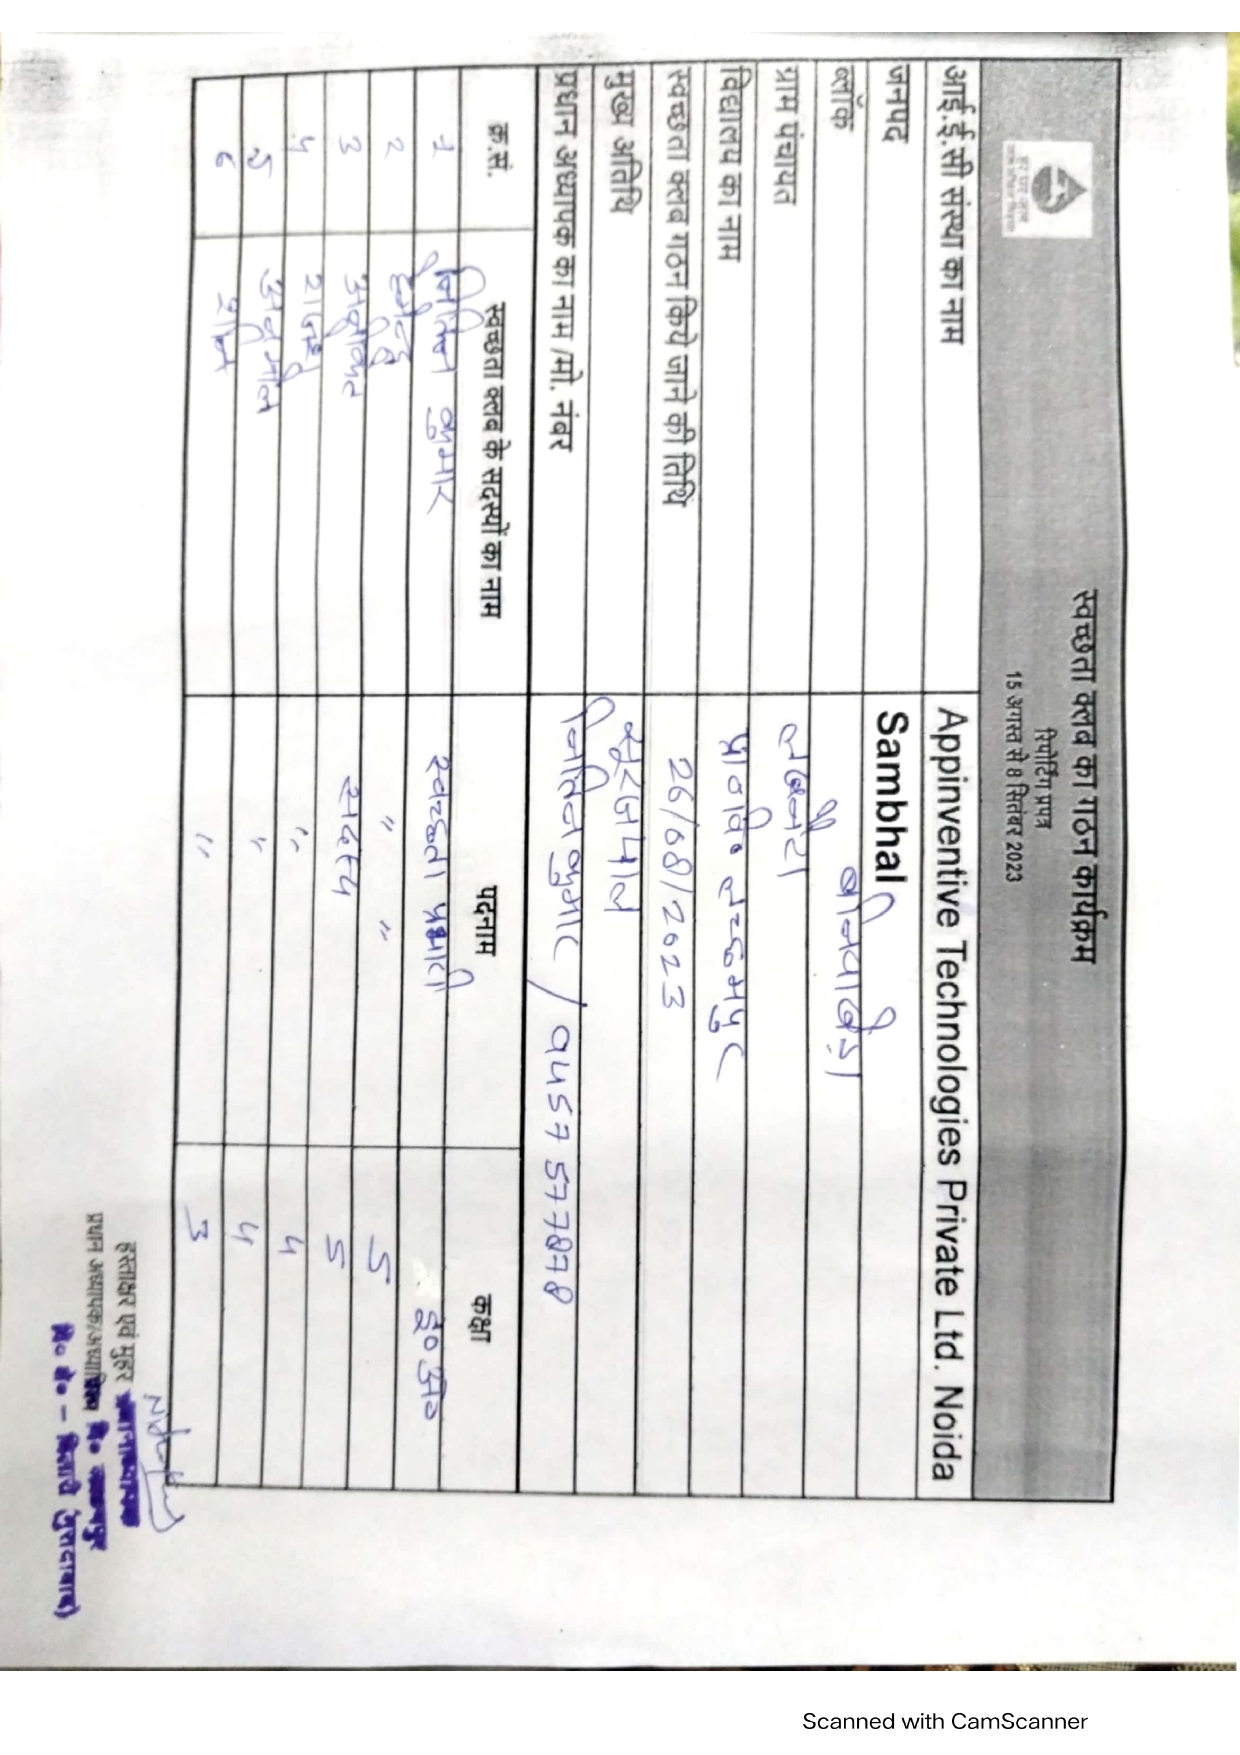 स्वच्छता क्लब का गठन कार्यक्रम
रिपोर्टिंग प्रपत्र
15 अगस्त से 8 सितंबर 2023
आई.ई.सी संस्था का नाम Appinventive Technologies Private Ltd. Noida
जनपद Sambhal
ब्लॉक बनियाखेड़ा
ग्राम पंचायत
विद्यालय का नाम प्रा०वि०
स्वच्छता क्लब गठन किये जाने की तिथि 26/08/2023
मुख्य अतिथि सूरजपाल
प्रधान अध्यापक का नाम /मो. नंबर नितिन कुमार / 9457577878
क्र.सं. स्वच्छता क्लब के सदस्यों का नाम पदनाम कक्षा
1 नितिन कुमार स्वच्छता प्रभारी इ०अ०
2 " " 5
3 सदस्य 5
4 " 4
5 " 4
6 " 3
हस्ताक्षर एवं मुहर
प्रधान अध्यापक/अध्यापिका
Scanned with CamScanner